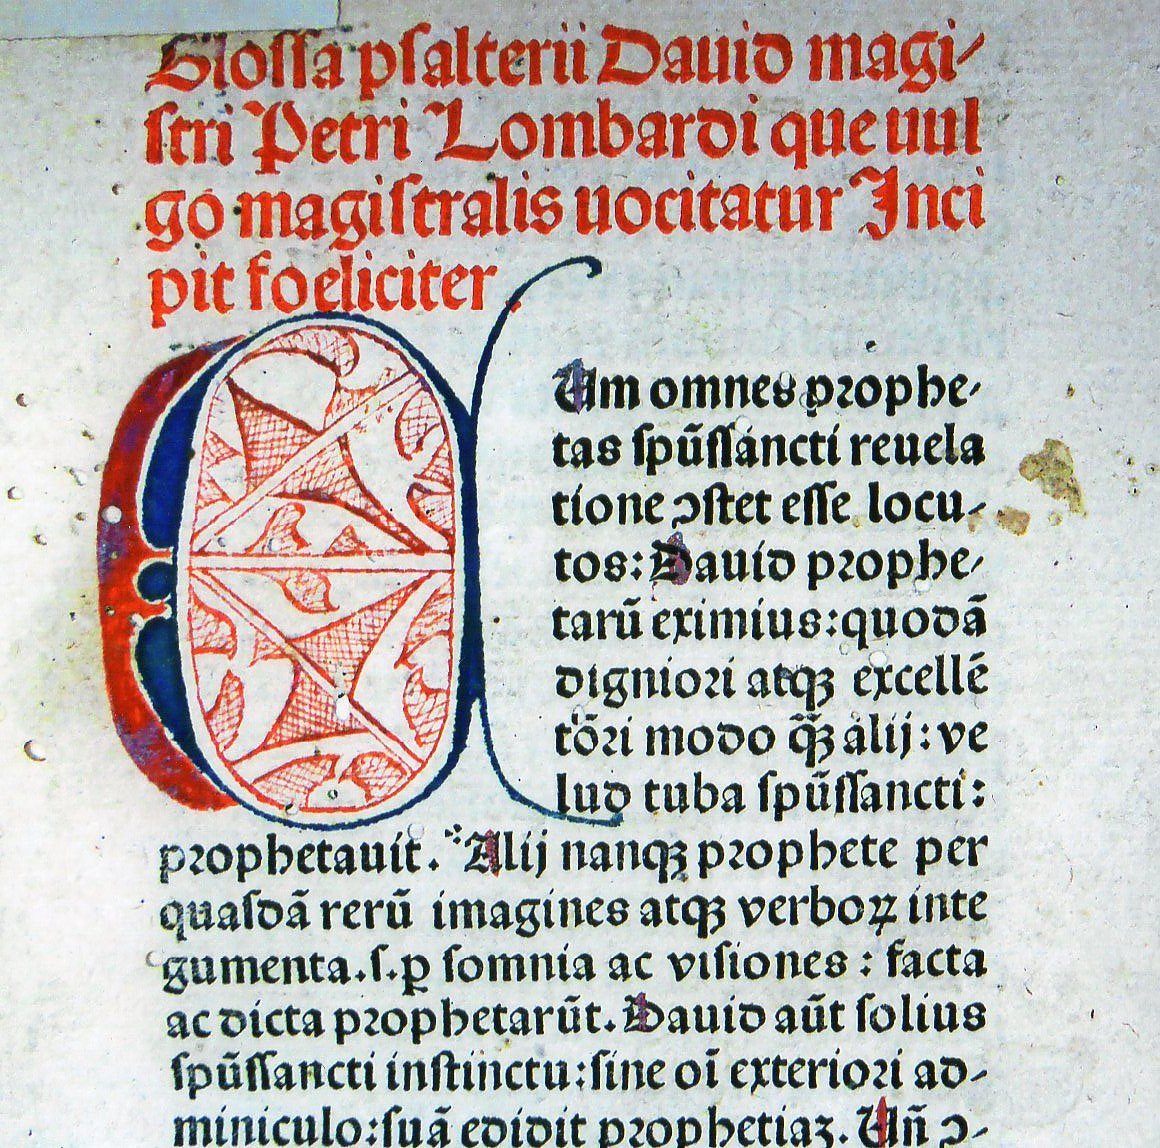 Glossa psalterii Dauid magi-
stri Petri Lombardi que uul
go magistralis uocitatur Inci
pit foeliciter
C
Um omnes prophe-
tas spūssancti reuela
tione ↄstet esse locu-
tos: Dauid prophe-
tarū eximius: quodā
digniori atqꝫ excellē
tōri modo q̄ꝫ alij: ve
lud tuba spūssancti:
prophetauit. Alij nanqꝫ prophete per
quasdā rerū imagines atqꝫ verboꝝ inte
gumenta.s.ꝑ somnia ac visiones: facta
ac dicta prophetarūt. Dauid aūt solius
spūssancti instinctu: sine oī exteriori ad-
miniculo: suā edidit prophetiaꝫ. Un̄ ↄ-